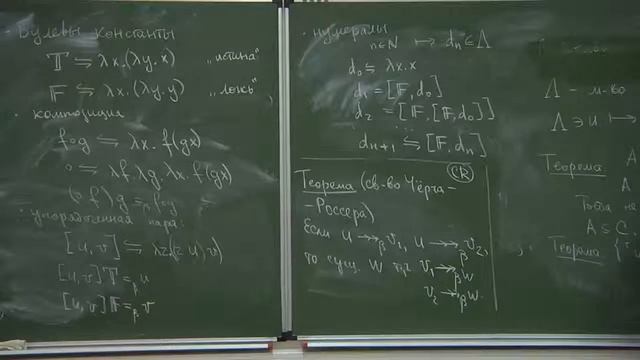 · Булевы константы
𝕋 ⇋ λx.(λy.x) „истина“
𝔽 ⇋ λx.(λy.y) „ложь“
· композиция
f∘g ⇋ λx.f(gx)
∘ ⇋ λf.λg.λx.f(gx)
(∘f)g =β f∘g
· упорядоченная пара:
[u,v] ⇋ λz.((z u) v)
[u,v]𝕋 =β u
[u,v]𝔽 =β v
· нумералы
n∈ℕ ↦ dn ∈ Λ
d₀ ⇋ λx.x
d₁ = [𝔽, d₀]
d₂ = [𝔽, [𝔽, d₀]]
...
dn+1 ⇋ [𝔽, dn]
CR
Теорема (св-во Чёрча-
-Россера)
Если u ↠β v₁, u ↠β v₂,
то сущ. w т.ч. v₁ ↠β w
v₂ ↠β w.
Λ – м-во
Λ ∋ u ↦
Теорема Λ
A
Тогда не
A ≤ C.
Теорема {